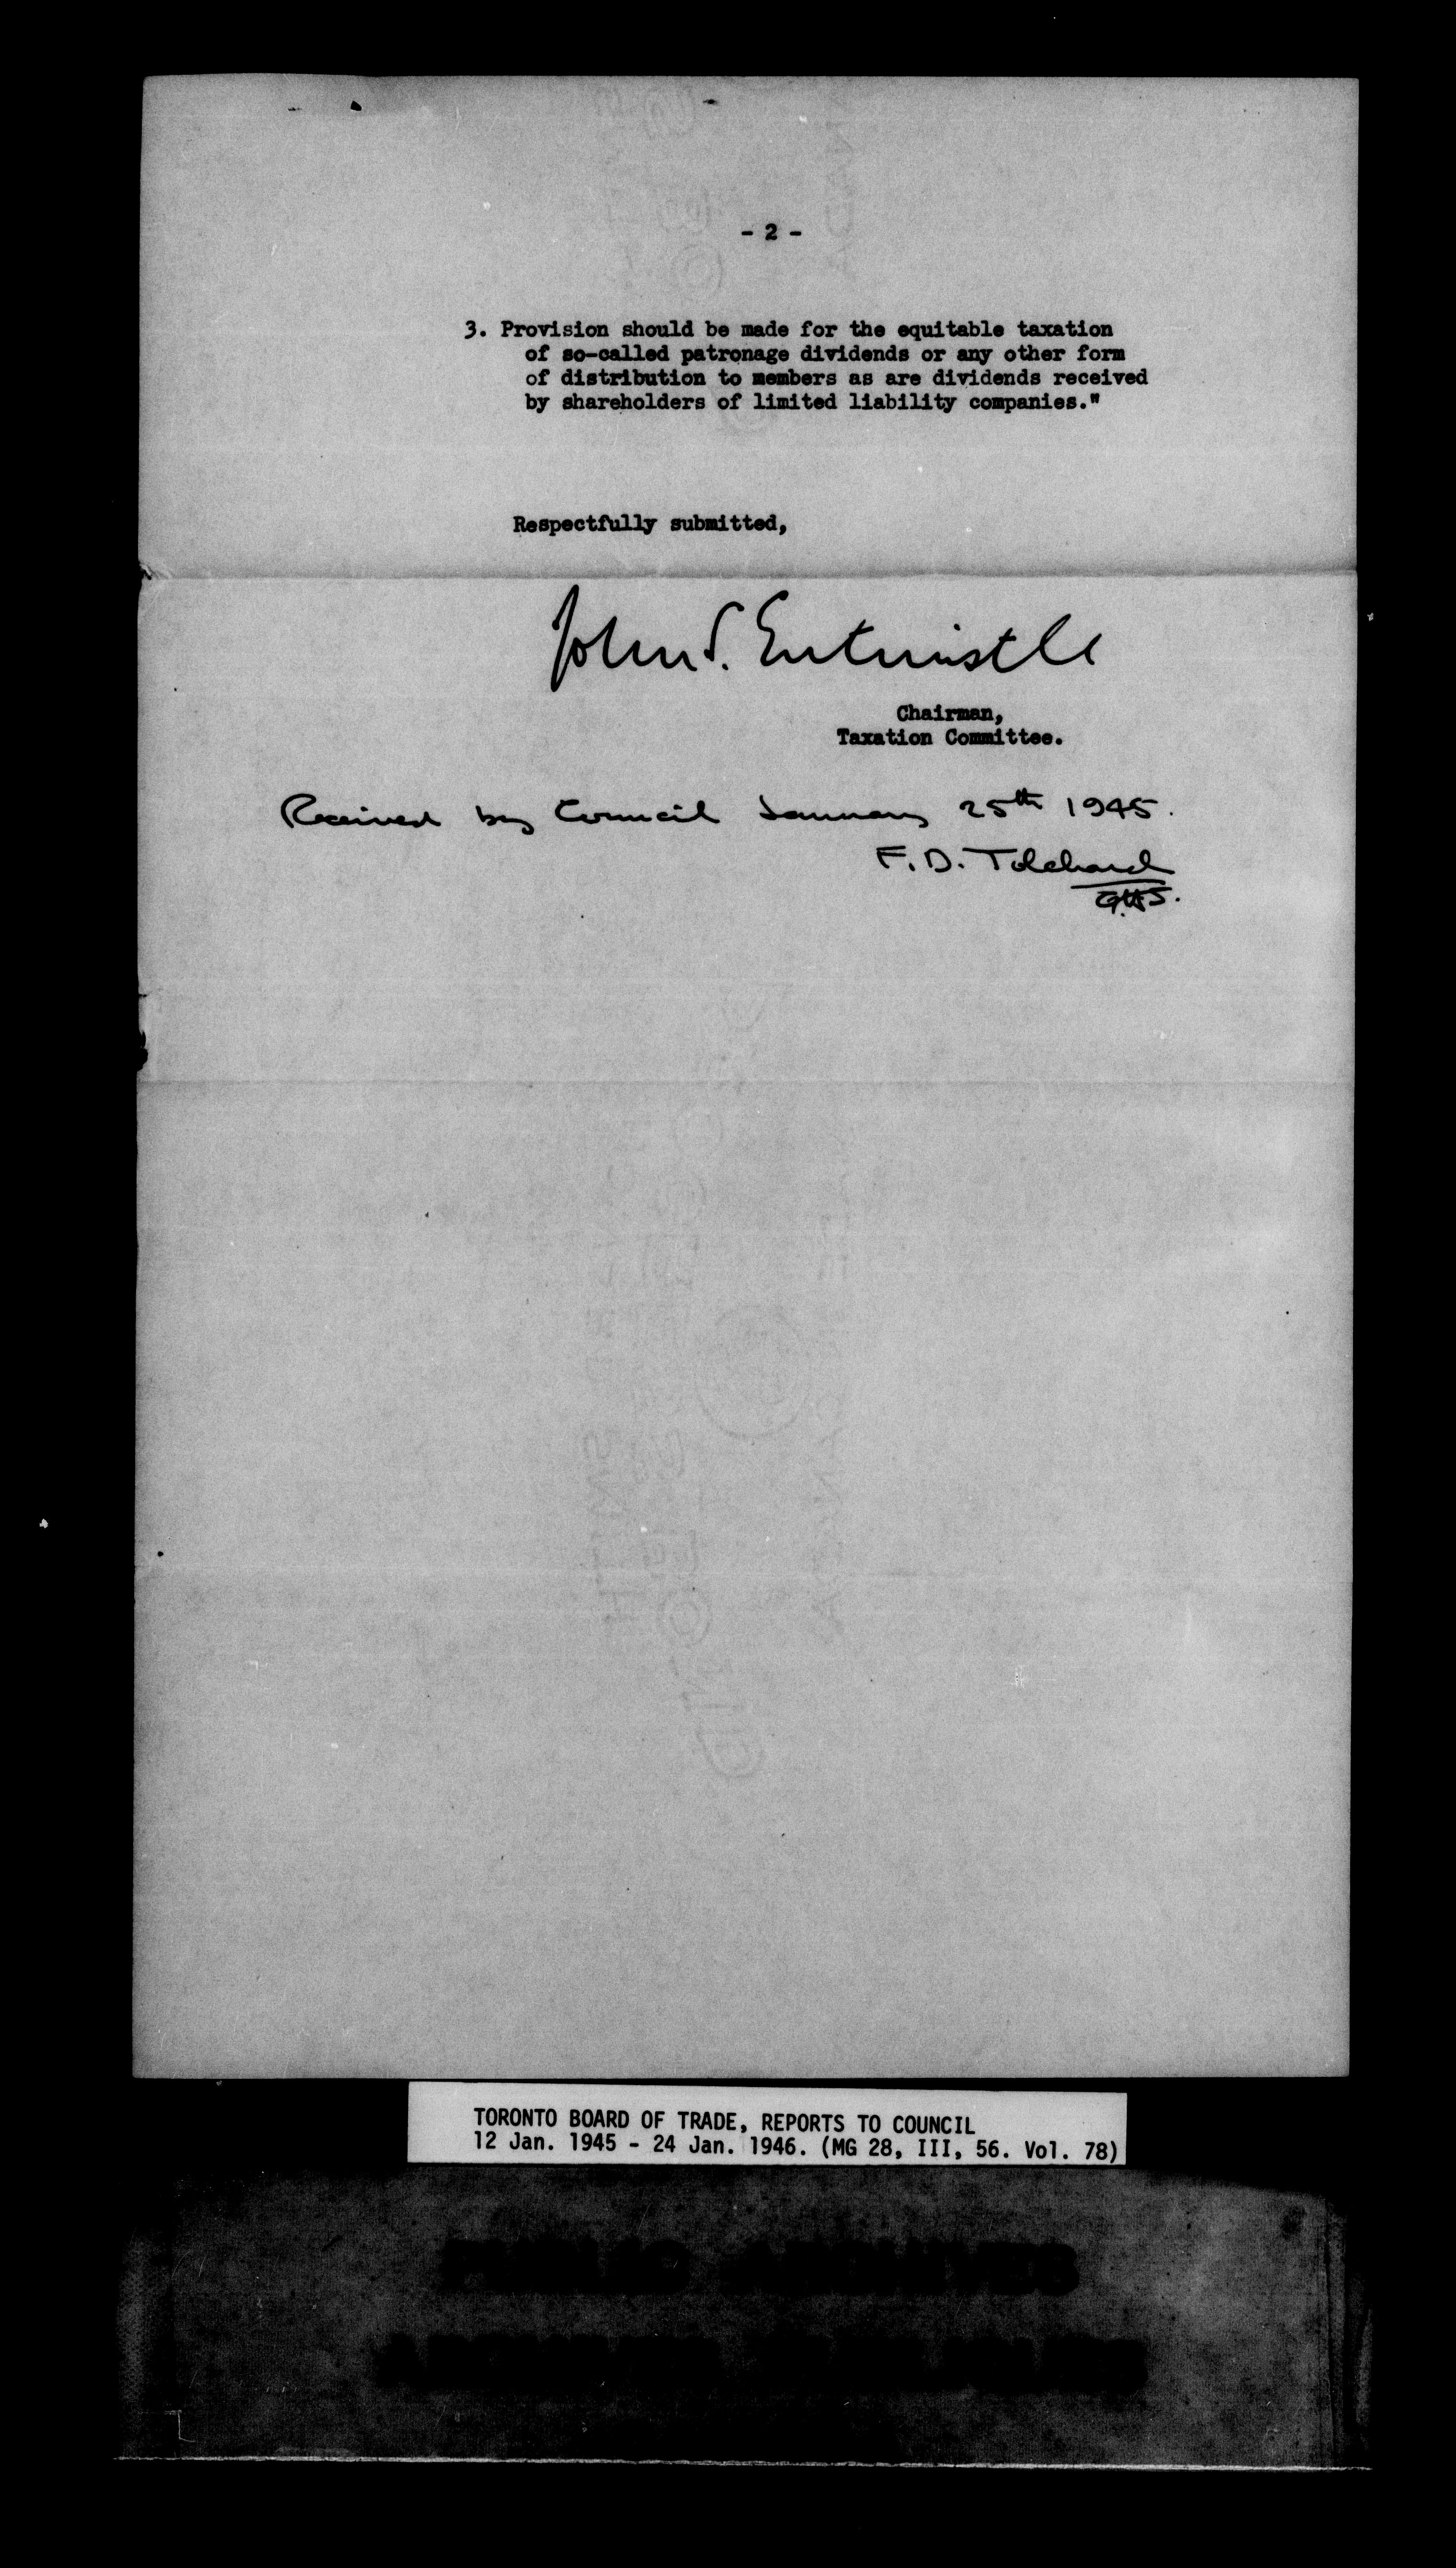 - 2 -
3. Provision should be made for the equitable taxation
of so-called patronage dividends or any other form
of distribution to members as are dividends received
by shareholders of limited liability companies."
Respectfully submitted,
John S. Entwistle
Chairman,
Taxation Committee.
Received by Council January 25th 1945.
F. D. Tolchard
TORONTO BOARD OF TRADE, REPORTS TO COUNCIL
12 Jan. 1945 - 24 Jan. 1946. (MG 28, III, 56. Vol. 78)
PUBLIC ARCHIVES